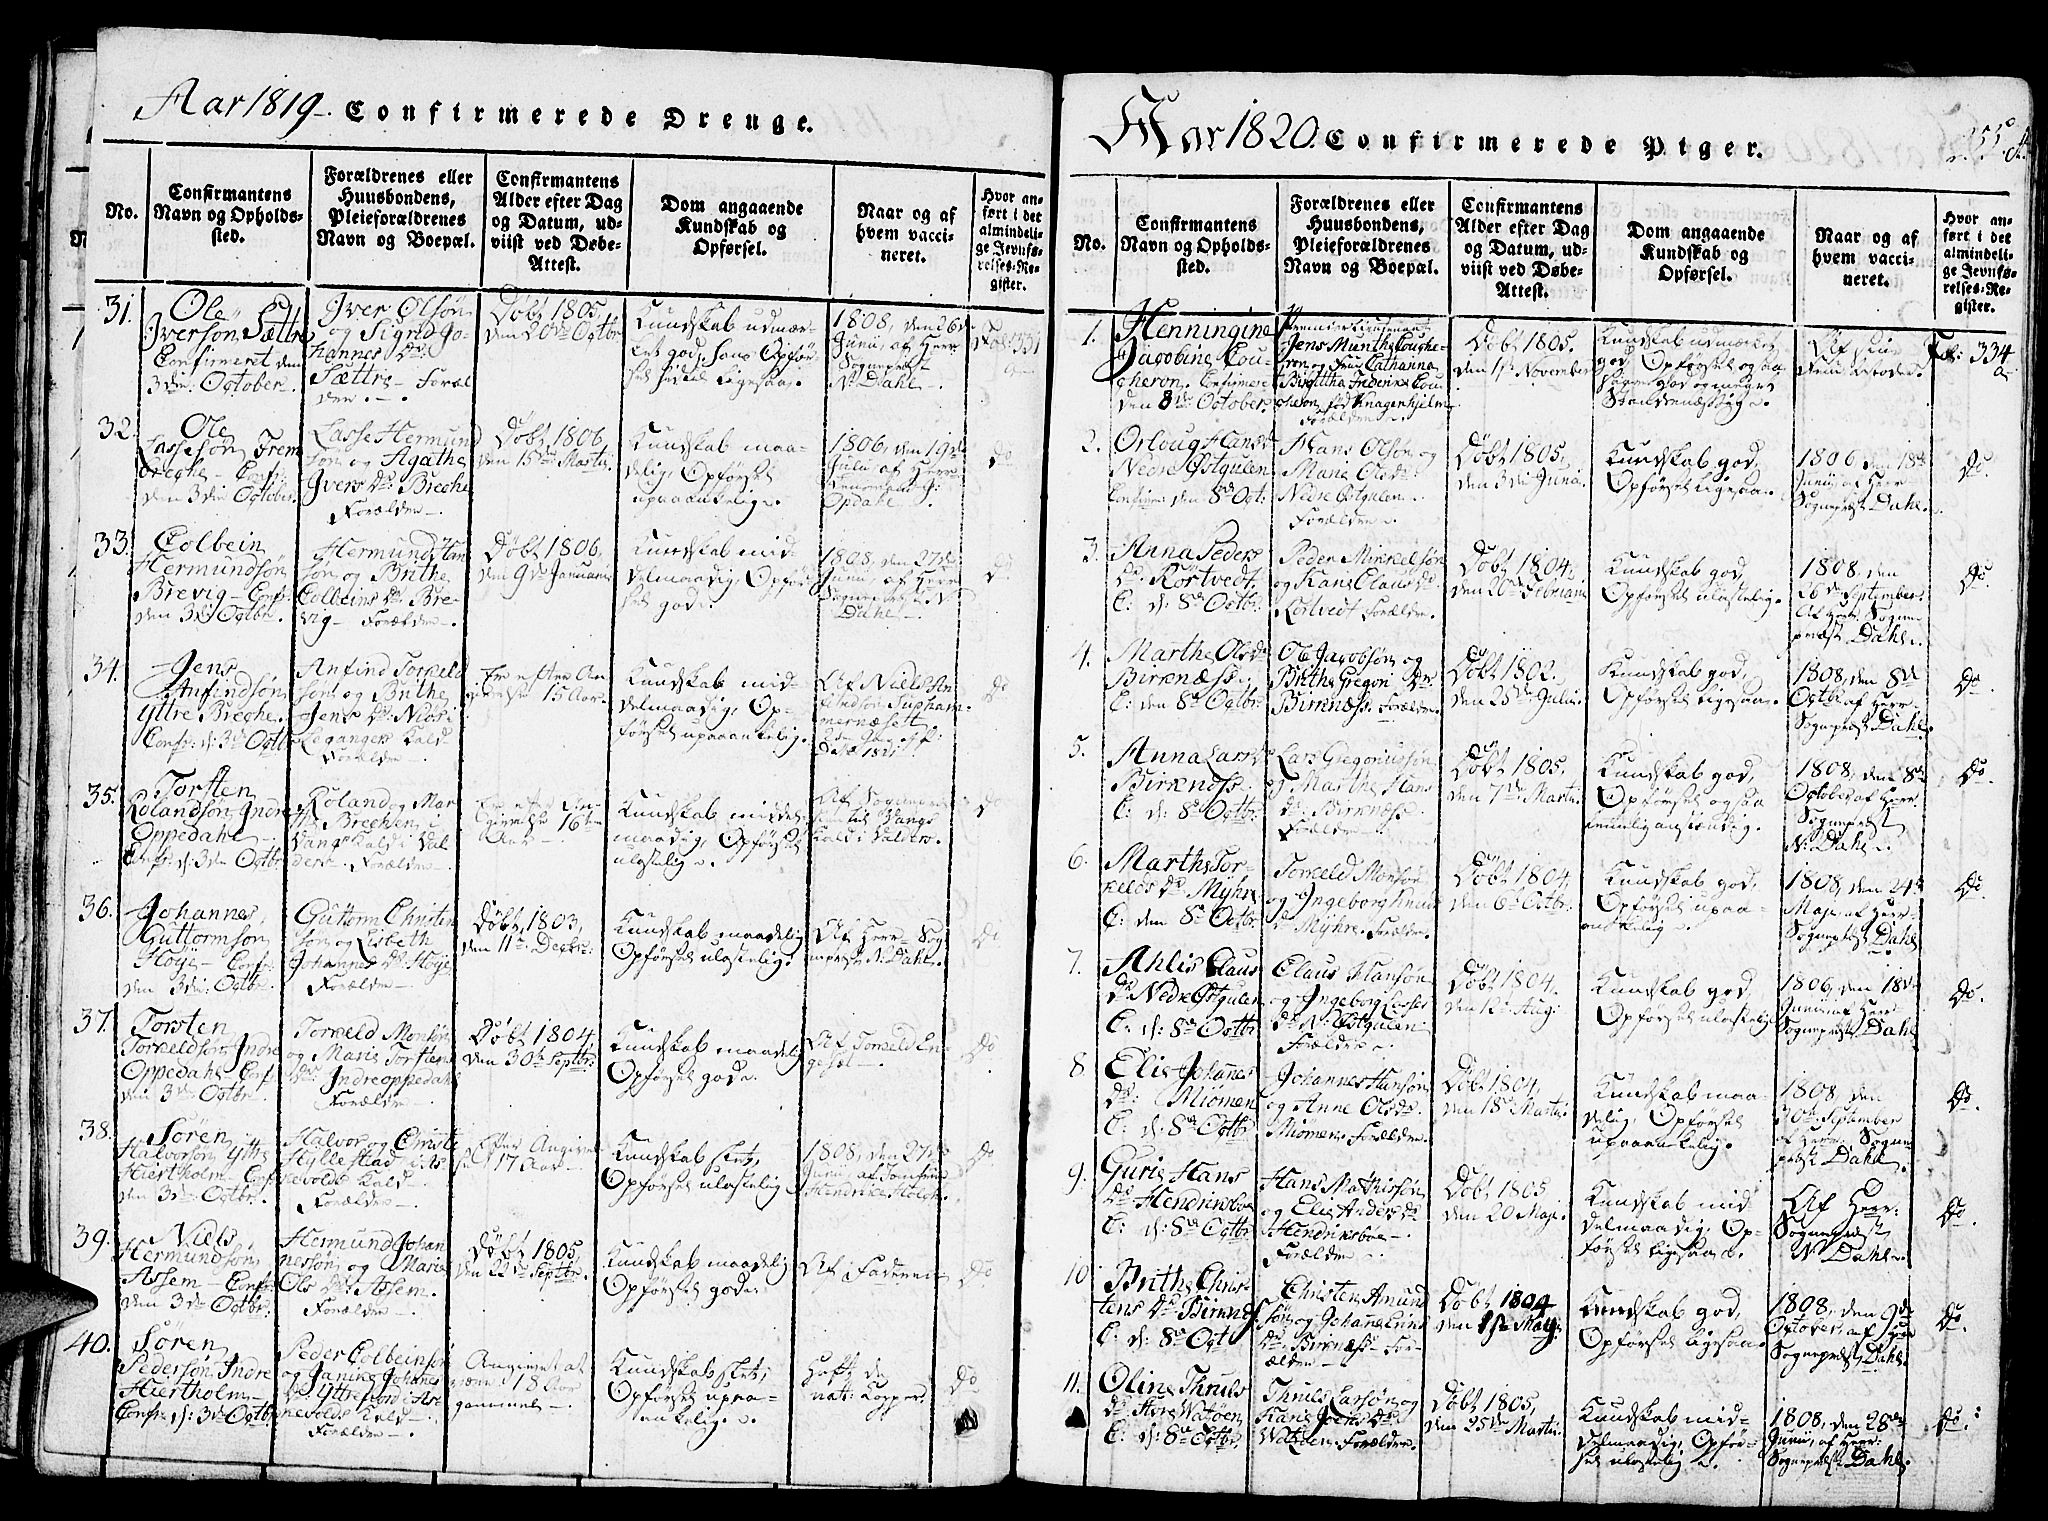 Aar 1819. Confirmerede Drenge.
No.
Confirmantens
Navn og Opholds-
sted.
Forældrenes eller
Huusbondens,
Pleieforældrenes
Navn og Boepæl.
Confirmantens
Alder efter Dag
og Datum, ud-
viist ved Døbe-
Attest.
Dom angaaende
Kundskab og
Opførsel.
Naar og af
hvem vacci-
neret.
Hvor an-
ført i det
almindeli-
ge Jevnfø-
relses-Re-
gister.
31.
Ole
Iversøn Sættre
Confirmeret den
3die October.
Iver Olsøn
og Sigrid Jo-
hannes Dr.
Sættre - Foræl
dre.
Døbt 1805,
den 20de Octbr
Kundskab udmær-
ket god, hans Opfør-
sel ligesaa.
1808, den 26de
Junii, af Herr
Sognepræst
N. Dahl.
Fol: 331
a
32.
Ole
Lassesøn Frem
Breche - Conf:
den 3die October.
Lasse Hermund
søn og Agathe
Ivers Dr. Breche
Forældre.
Døbt 1806,
den 15de Martii
Kundskab maa-
delig, Opførsel
upaaankelig.
1806, den 19de
Julii af Herr
Opdahl.
Do
33.
Colbein
Hermundsøn
Brevig - Conf:
den 3die Octbr.
Hermund Han
søn og Brithe
Colbeins Dr. Bre-
vig - Forældre.
Døbt 1806,
den 9de Januarii
Kundskab mid-
delmaadig, Opfør
sel god.
1808, den 27de
Junii, af Herr
Sognepræst N
Dahl.
Do
34.
Jens
Anfindsøn
Yttre Breche.
Conf: d: 3die Octb
Anfind Torkeld
søn og Brithe
Jens Dr. Niøs i
Leganger Kald
Forældre
Er efter An
givelse 15 Aar.
Kundskab mid-
delmaadig, Op-
førsel upaaankelig.
Af Niels An
Do
35.
Torsten
Rolandsøn Indre
Oppedahl
Conf: d: 3die Octbr.
Roland og Mar
the Brechen i
Vangs Kald i Val
ders. Forældre.
Er efter An-
givelse 16ten
Aar.
Kundskab middel
maadig, Opførsel
ulastelig.
Vangs
Kald i Valders.
Do
36.
Johannes
Guttormsøn
Høije - Conf:
den 3die Octbr.
Guttorm Christen
søn og Lisbeth
Johannes Dr. Høije
Forældre
Døbt 1803,
den 11te Decbr:
Kundskab maadelig
Opførsel ulastelig.
Af Herr Sog
nepræst N. Dahl.
Do
37.
Torsten
Torkeldsøn Indre
Oppedahl Conf:
den 3die Octbr.
Torkeld Monsøn
og Marie Torstens
Dr. Indre oppedahl
Forældre
Døbt 1804,
den 30te Septbr:
Kundskab maadelig
Opførsel god.
Af Torkeld En
gesæt
Do
38.
Søren
Halvorsøn Yttre
Hiertholm - Conf
den 3die Octbr.
Halvor og Christi
Hyllestad i As
kevolds Kald
Forældre
Efter Angivel
se 17 Aar
Kundskab slet,
Opførsel ulastelig
1808, den 27de
Junii af Jomfrue
Hendrike Holck.
Do
39.
Niels
Hermundsøn
Assem - Conf:
den 3die Octbr.
Hermund Johan
nessøn og Marie
Ols Dr. Assem.
Forældre
Døbt 1805,
den 22de Septbr.
Kundskab maadelig
Opførsel god.
Af Faderen
Do
40.
Søren
Pedersøn Indre
Hiertholm -
Conf: d: 3die Octbr
Peder Colbeinsøn
og Janike Johanes
Dr. Yttrefiord i As
kevolds Kald
Forældre
Angivet at
være 18 Aar
gammel
Kundskab slet,
Opførsel upaa-
ankelig.
Haft de
nat: Kopper
Do
Aar 1820. Confirmerede Piger.
255
No.
Confirmantens
Navn og Opholds-
sted.
Forældrenes eller
Huusbondens,
Pleieforældrenes
Navn og Boepæl.
Confirmantens
Alder efter Dag
og Datum, ud-
viist ved Døbe-
Attest.
Dom angaaende
Kundskab og
Opførsel.
Naar og af
hvem vacci-
neret.
Hvor an-
ført i det
almindeli-
ge Jevnfø-
relses-Re-
gister.
1.
Henningine
Jacobine Cou-
cheron. Confirmeret
den 8de October.
Premier Lieutenant
Jens Munthe Couche-
ron og Frue Cathanna
Birgitha Frederike Cou-
cheron, fød Knagenhjelm
Forældre
Døbt 1805.
den 1ste November
Kundskab udmærket
god, Opførsel ogsaa
god og meget
Af sine
Fol: 334
a
2.
Orloug Hans Dr
Nedre Østgulen
Confirm: den 8de Oct:
Hans Olsøn og
Marie Ols Dr.
Nedre Østgulen.
Forældre.
Døbt 1805,
den 3die Junii
Kundskab god,
Opførsel ligesaa.
1806, den 18de
Junii, af Herr
Sognepræst Dahl.
Do
3.
Anna Peders
Dr. Røstvedt.
C: d: 8de Octbr:
Peder Mirkelsøn
og Kari Claus Dr.
Forældre.
Døbt 1804,
den 26de Februarii
Kundskab god,
Opførsel ulastelig.
1808, den
26de September.
Af Herr Sogne-
præst Dahl.
Do
4.
Marthe Ols Dr
Birknæss.
C: den 8de Octbr.
Ole Jacobsøn og
Brithe Gregori Dr.
Birknæss. Forældre.
Døbt 1802.
den 25de Julii.
Kundskab god,
Opførsel ligesaa.
1808, den 8de
Octbr af Herr
Sognepræst Dahl.
Do.
5.
Anna Lars Dr
Birknæss
C: d: 8de Octbr.
Lars Gregoriussøn
og Marthe Hans
Dr. Birknæss
Forældre
Døbt 1805,
den 7de Martii.
Kundskab god,
Opførsel ogsaa
temmelig anstændig.
1808, den 8de
October af Herr
Sognepræst
N. Dahl.
Do.
6.
Marthe Tor-
kelds Dr. Myhre
C: den 8de Octbr.
Torkeld Monsøn
og Ingeborg Knuds
Dr. Myhre. Forældre.
Døbt 1804,
den 6te Octbr:
Kundskab god,
Opførsel upaa-
ankelig.
1808, den 24de
Maji, af Herr
Sognepræst Dahl.
Do.
7.
Ahlis Claus
Dr. Nedre Østgulen
C: d: 8de Octbr
Claus Hansøn
og Ingeborg Lasses
Dr. N: Østgulen
Forældre
Døbt 1804.
den 12te Aug:
Kundskab god,
Opførsel ulastelig
1806, den 18de
Junii af Herr
Sognepræst Dahl
Do.
8.
Elie Johanes
Dr: Miømen
C: d: 8de Octbr
Johannes Hansøn
og Anne Ols Dr.
Miømen. Forældre.
Døbt 1804.
den 18de Martii
Kundskab maa-
delig, Opførsel
upaaankelig.
1808, den
30te September
af Herr Sogne-
præst Dahl.
Do.
9.
Gurie Hans
Dr. Hendriksbøe
C: d: 8de Octbr
Hans Mathissøn
og Elie Anders Dr
Hendriksbøe
Forældre
Døbt 1805
den 20 Maji.
Kundskab mid-
delmaadig, Op-
førsel ligesaa.
Af Herr:
Sognepræst
N Dahl.
Do.
10
Brithe Chris-
tens Dr. Birknæs.
C: d: 8de Octb
Christen Amund
søn og Johane Enns
Dr. Birknæss For-
ældre
Døbt 1804
den 1ste Maji:
Kundskab god,
Opførsel ligesaa.
1808, den 9de
October, af Herr
Sognepræst Dahl.
Do.
11.
Oline Thruls
Dr. Store Watøen
C: d: 8de Octbr.
Thruls Larsøn og
Kari Joens Dr.
Watøen Forældre.
Døbt 1805,
den 25de Martii.
Kundskab mid-
delmaadig, Opfør-
sel ulastelig.
1808, den 28de
Junii, af Herr:
Sognepræst Dahl.
Do.